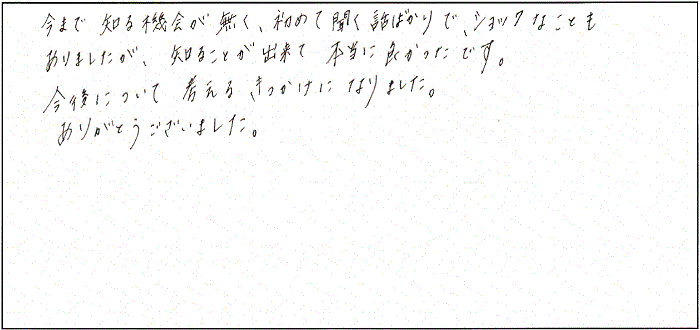 今まで知る機会が無く、初めて聞く話ばかりで、ショックなことも
ありましたが、知ることが出来て本当に良かったです。
今後について考えるきっかけになりました。
ありがとうございました。